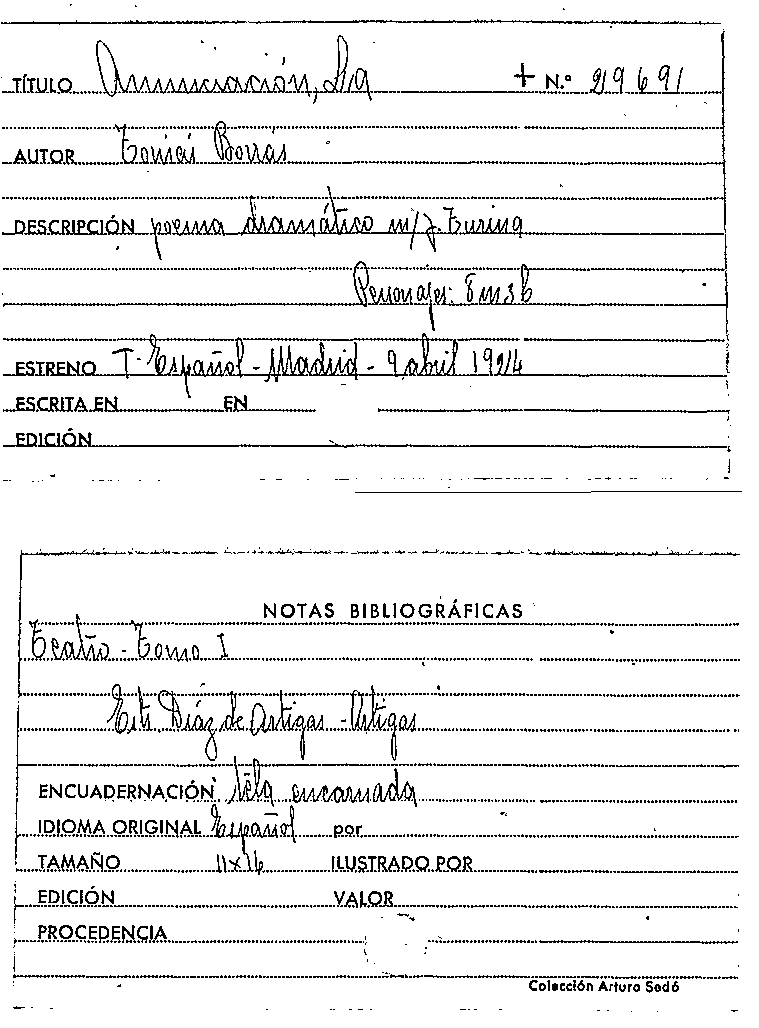 TÍTULO Anunciación, La + N.º 29691
AUTOR Tomás Borrás
DESCRIPCIÓN poema dramático m/ J. Turina
Personajes: 8 m 3 h
ESTRENO T. Español - Madrid - 9 abril 1924
ESCRITA EN EN
EDICIÓN
NOTAS BIBLIOGRÁFICAS
Teatro - Tomo I
Est. Díaz de Artigas - Artigas
ENCUADERNACIÓN tela encarnada
IDIOMA ORIGINAL Español por
TAMAÑO 11x16 ILUSTRADO POR
EDICIÓN VALOR
PROCEDENCIA
Colección Arturo Sedó